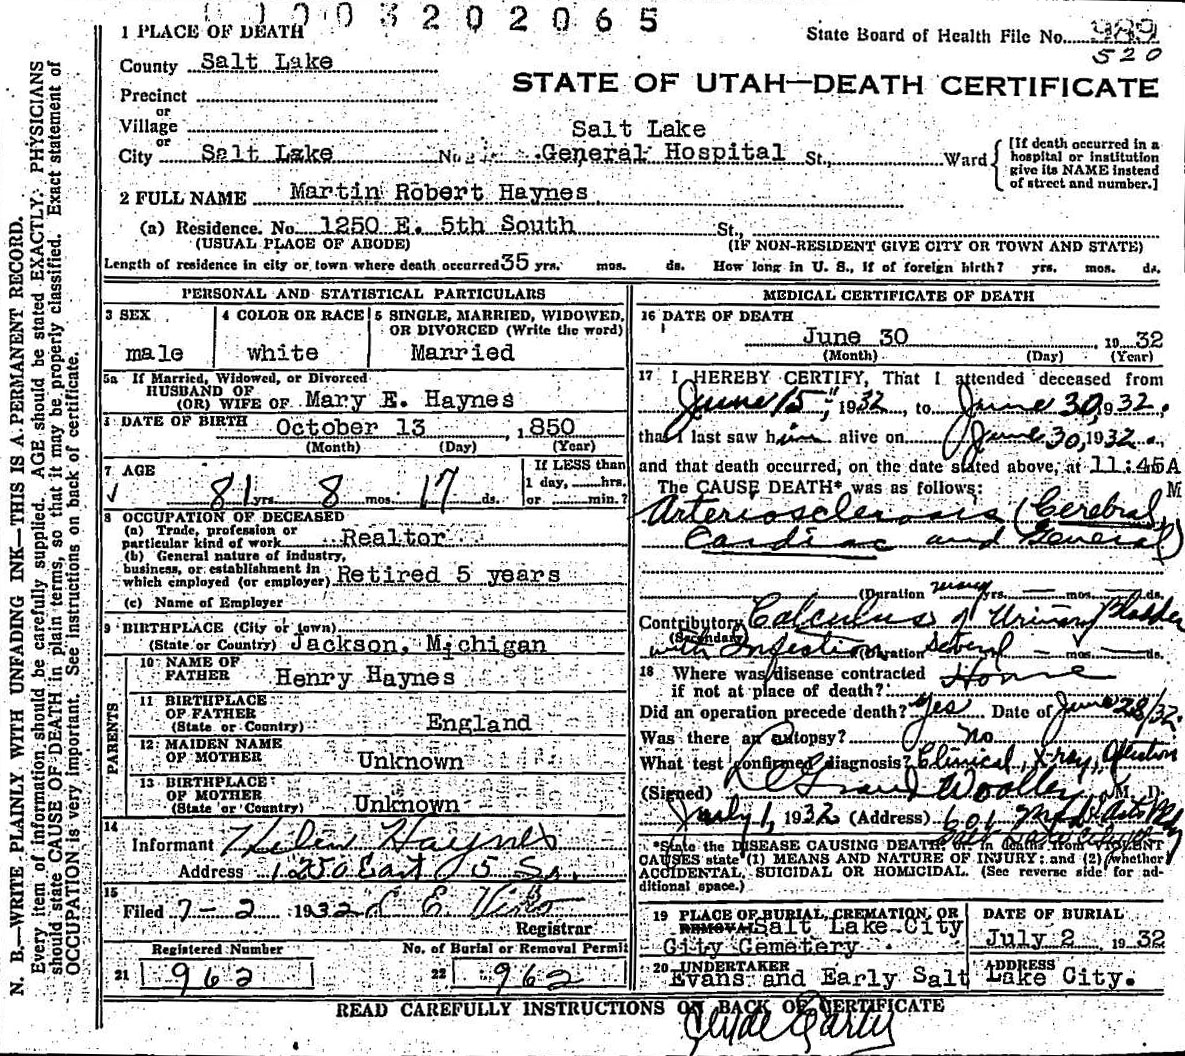 0003202065
1 PLACE OF DEATH
State Board of Health File No. 989
520
County Salt Lake
STATE OF UTAH—DEATH CERTIFICATE
Precinct
or
Village
or
Salt Lake
City Salt Lake No. General Hospital St., Ward
[If death occurred in a hospital or institution give its NAME instead of street and number.]
2 FULL NAME Martin Robert Haynes
(a) Residence. No. 1250 E. 5th South St.,
(USUAL PLACE OF ABODE) (IF NON-RESIDENT GIVE CITY OR TOWN AND STATE)
Length of residence in city or town where death occurred 35 yrs. mos. ds. How long in U. S., if of foreign birth? yrs. mos. ds.
PERSONAL AND STATISTICAL PARTICULARS
3 SEX
male
4 COLOR OR RACE
white
5 SINGLE, MARRIED, WIDOWED, OR DIVORCED (Write the word)
Married
5a If Married, Widowed, or Divorced
HUSBAND OF
(OR) WIFE OF Mary E. Haynes
DATE OF BIRTH October 13, 1850
(Month) (Day) (Year)
7 AGE
81 yrs. 8 mos. 17 ds.
If LESS than
1 day, hrs.
or min.?
8 OCCUPATION OF DECEASED
(a) Trade, profession or
particular kind of work Realtor
(b) General nature of industry,
business, or establishment in
which employed (or employer) Retired 5 years
(c) Name of Employer
9 BIRTHPLACE (City or town)
(State or Country) Jackson, Michigan
PARENTS
10 NAME OF
FATHER Henry Haynes
11 BIRTHPLACE
OF FATHER
(State or Country) England
12 MAIDEN NAME
OF MOTHER Unknown
13 BIRTHPLACE
OF MOTHER
(State or Country) Unknown
14
Informant Helen Haynes
Address 1250 East 5 So.
15
Filed 7-2 1932
Registrar
Registered Number
21 962
No. of Burial or Removal Permit
22 962
MEDICAL CERTIFICATE OF DEATH
16 DATE OF DEATH
June 30, 1932
(Month) (Day) (Year)
17 I HEREBY CERTIFY, That I attended deceased from
June 15, 1932, to June 30, 1932.
that I last saw him alive on June 30, 1932.
and that death occurred, on the date stated above, at 11:45A
The CAUSE DEATH* was as follows: M
Arteriosclerosis (Cerebral
Cardiac and General)
(Duration many yrs. — mos. — ds.
Contributory Calculus of Urinary Bladder
(Secondary)
with Infection (Duration several — — ds.
18 Where was disease contracted
if not at place of death? Home
Did an operation precede death? yes Date of June 28/32.
Was there an autopsy? No
What test confirmed diagnosis? Clinical, X-ray,
(Signed) Woolley, M. D.
July 1, 1932 (Address) 601
*State the DISEASE CAUSING DEATH, or in deaths from VIOLENT
CAUSES state (1) MEANS AND NATURE OF INJURY: and (2) whether
ACCIDENTAL, SUICIDAL OR HOMICIDAL. (See reverse side for ad-
ditional space.)
19 PLACE OF BURIAL, CREMATION, OR
REMOVAL Salt Lake City
City Cemetery
DATE OF BURIAL
July 2, 1932
20 UNDERTAKER
Evans and Early Salt Lake City.
ADDRESS
READ CAREFULLY INSTRUCTIONS ON BACK OF CERTIFICATE
Clyde Early
N. B.—WRITE PLAINLY WITH UNFADING INK—THIS IS A PERMANENT RECORD.
Every item of information should be carefully supplied. AGE should be stated EXACTLY. PHYSICIANS
should state CAUSE OF DEATH in plain terms, so that it may be properly classified. Exact statement of
OCCUPATION is very important. See instructions on back of certificate.